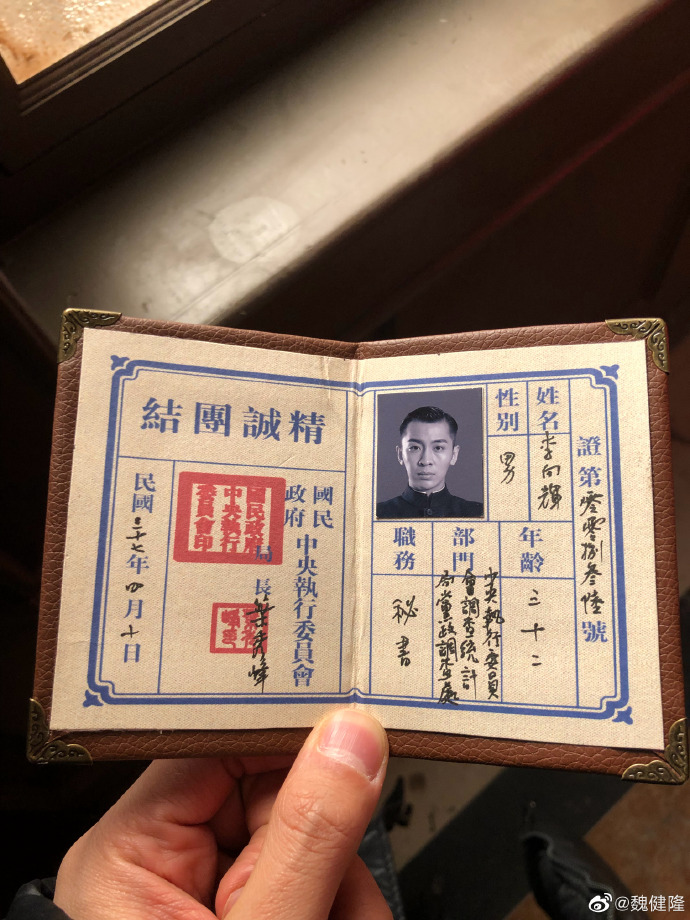 證第零零捌叁陸號
姓名 李向輝
性別 男
年齡 三十二
部門 中央執行委員
會調查統計
局黨政調查處
職務 秘書
精誠團結
國民政府 中央執行委員會
局長
國民政府
中央執行
委員會印
民國三十七年四月十日
@魏健隆